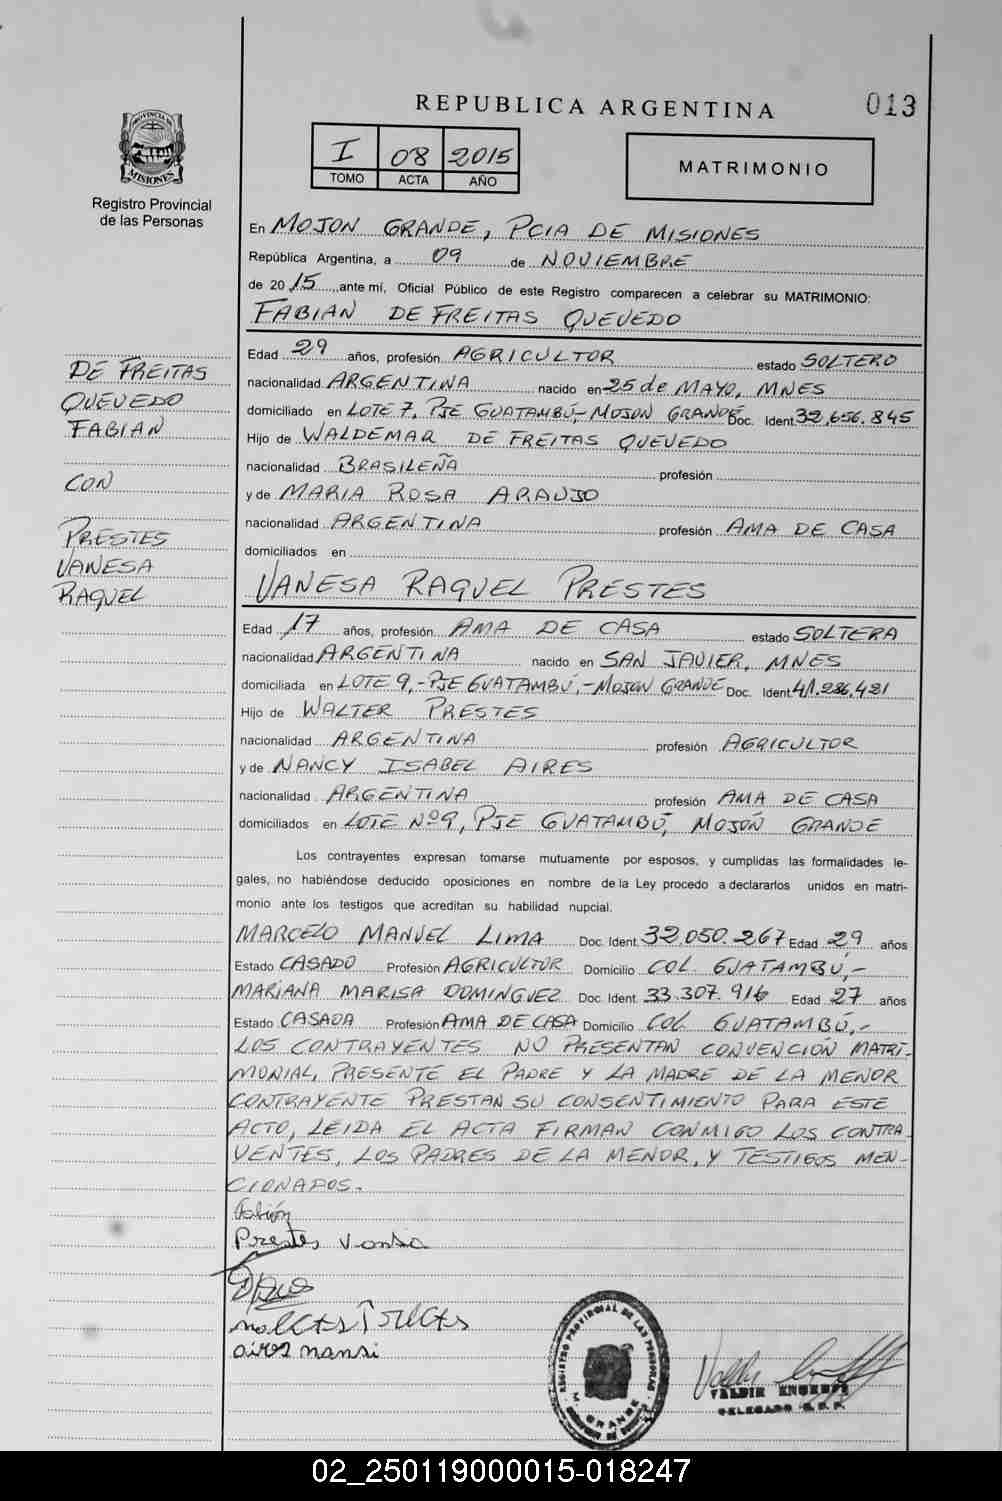 REPUBLICA ARGENTINA
013
PROVINCIA DE
MISIONES
Registro Provincial
de las Personas
I 08 2015
TOMO ACTA AÑO
MATRIMONIO
En MOJON GRANDE, PCIA DE MISIONES
República Argentina, a 09 de NOVIEMBRE
de 2015, ante mí, Oficial Público de este Registro comparecen a celebrar su MATRIMONIO:
FABIAN DE FREITAS QUEVEDO
DE FREITAS
QUEVEDO
FABIAN
CON
PRESTES
VANESA
RAQUEL
Edad 29 años, profesión AGRICULTOR estado SOLTERO
nacionalidad ARGENTINA nacido en 25 de MAYO, MNES
domiciliado en LOTE 7, PJE GUATAMBÚ,-MOJON GRANDE Doc. Ident. 32.656.845
Hijo de WALDEMAR DE FREITAS QUEVEDO
nacionalidad BRASILEÑA profesión
y de MARIA ROSA ARAUJO
nacionalidad ARGENTINA profesión AMA DE CASA
domiciliados en
VANESA RAQUEL PRESTES
Edad 17 años, profesión AMA DE CASA estado SOLTERA
nacionalidad ARGENTINA nacido en SAN JAVIER, MNES
domiciliada en LOTE 9,-PJE GUATAMBÚ,-MOJON GRANDE Doc. Ident. 41.286.421
Hijo de WALTER PRESTES
nacionalidad ARGENTINA profesión AGRICULTOR
y de NANCY ISABEL AIRES
nacionalidad ARGENTINA profesión AMA DE CASA
domiciliados en LOTE Nº9, PJE GUATAMBÚ, MOJÓN GRANDE
Los contrayentes expresan tomarse mutuamente por esposos, y cumplidas las formalidades le-
gales, no habiéndose deducido oposiciones en nombre de la Ley procedo a declararlos unidos en matri-
monio ante los testigos que acreditan su habilidad nupcial.
MARCELO MANUEL LIMA Doc. Ident. 32.050.267 Edad 29 años
Estado CASADO Profesión AGRICULTOR Domicilio COL. GUATAMBÚ,-
MARIANA MARISA DOMINGUEZ Doc. Ident. 33.307.916 Edad 27 años
Estado CASADA Profesión AMA DE CASA Domicilio COL. GUATAMBÚ,-
LOS CONTRAYENTES NO PRESENTAN CONVENCIÓN MATRI-
MONIAL, PRESENTE EL PADRE Y LA MADRE DE LA MENOR
CONTRAYENTE PRESTAN SU CONSENTIMIENTO PARA ESTE
ACTO, LEIDA EL ACTA FIRMAN CONMIGO LOS CONTRA
YENTES, LOS PADRES DE LA MENOR, Y TESTIGOS MEN-
CIONADOS.
Fabián
Prestes Vanesa
aires nansi
REGISTRO PROVINCIAL DE LAS PERSONAS
M. GRANDE
VALDIR
DELEGADO R.P.P.
02_250119000015-018247